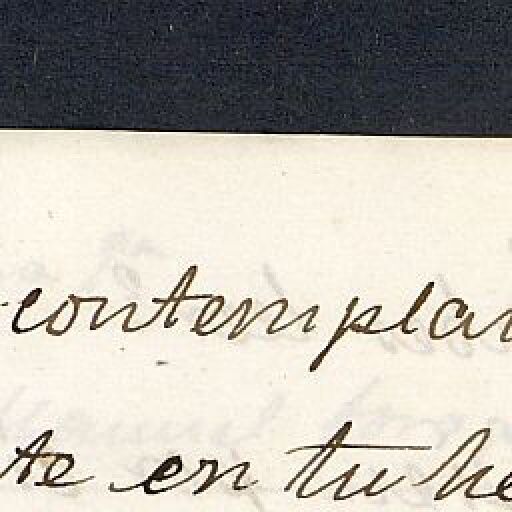 contemplan
te en tu he